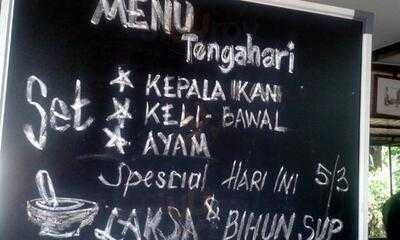 MENU
Tengahari
Set
★ KEPALA IKAN
★ KELI - BAWAL
★ AYAM
Spescial HARI INI 5/3
LAKSA & BIHUN SUP